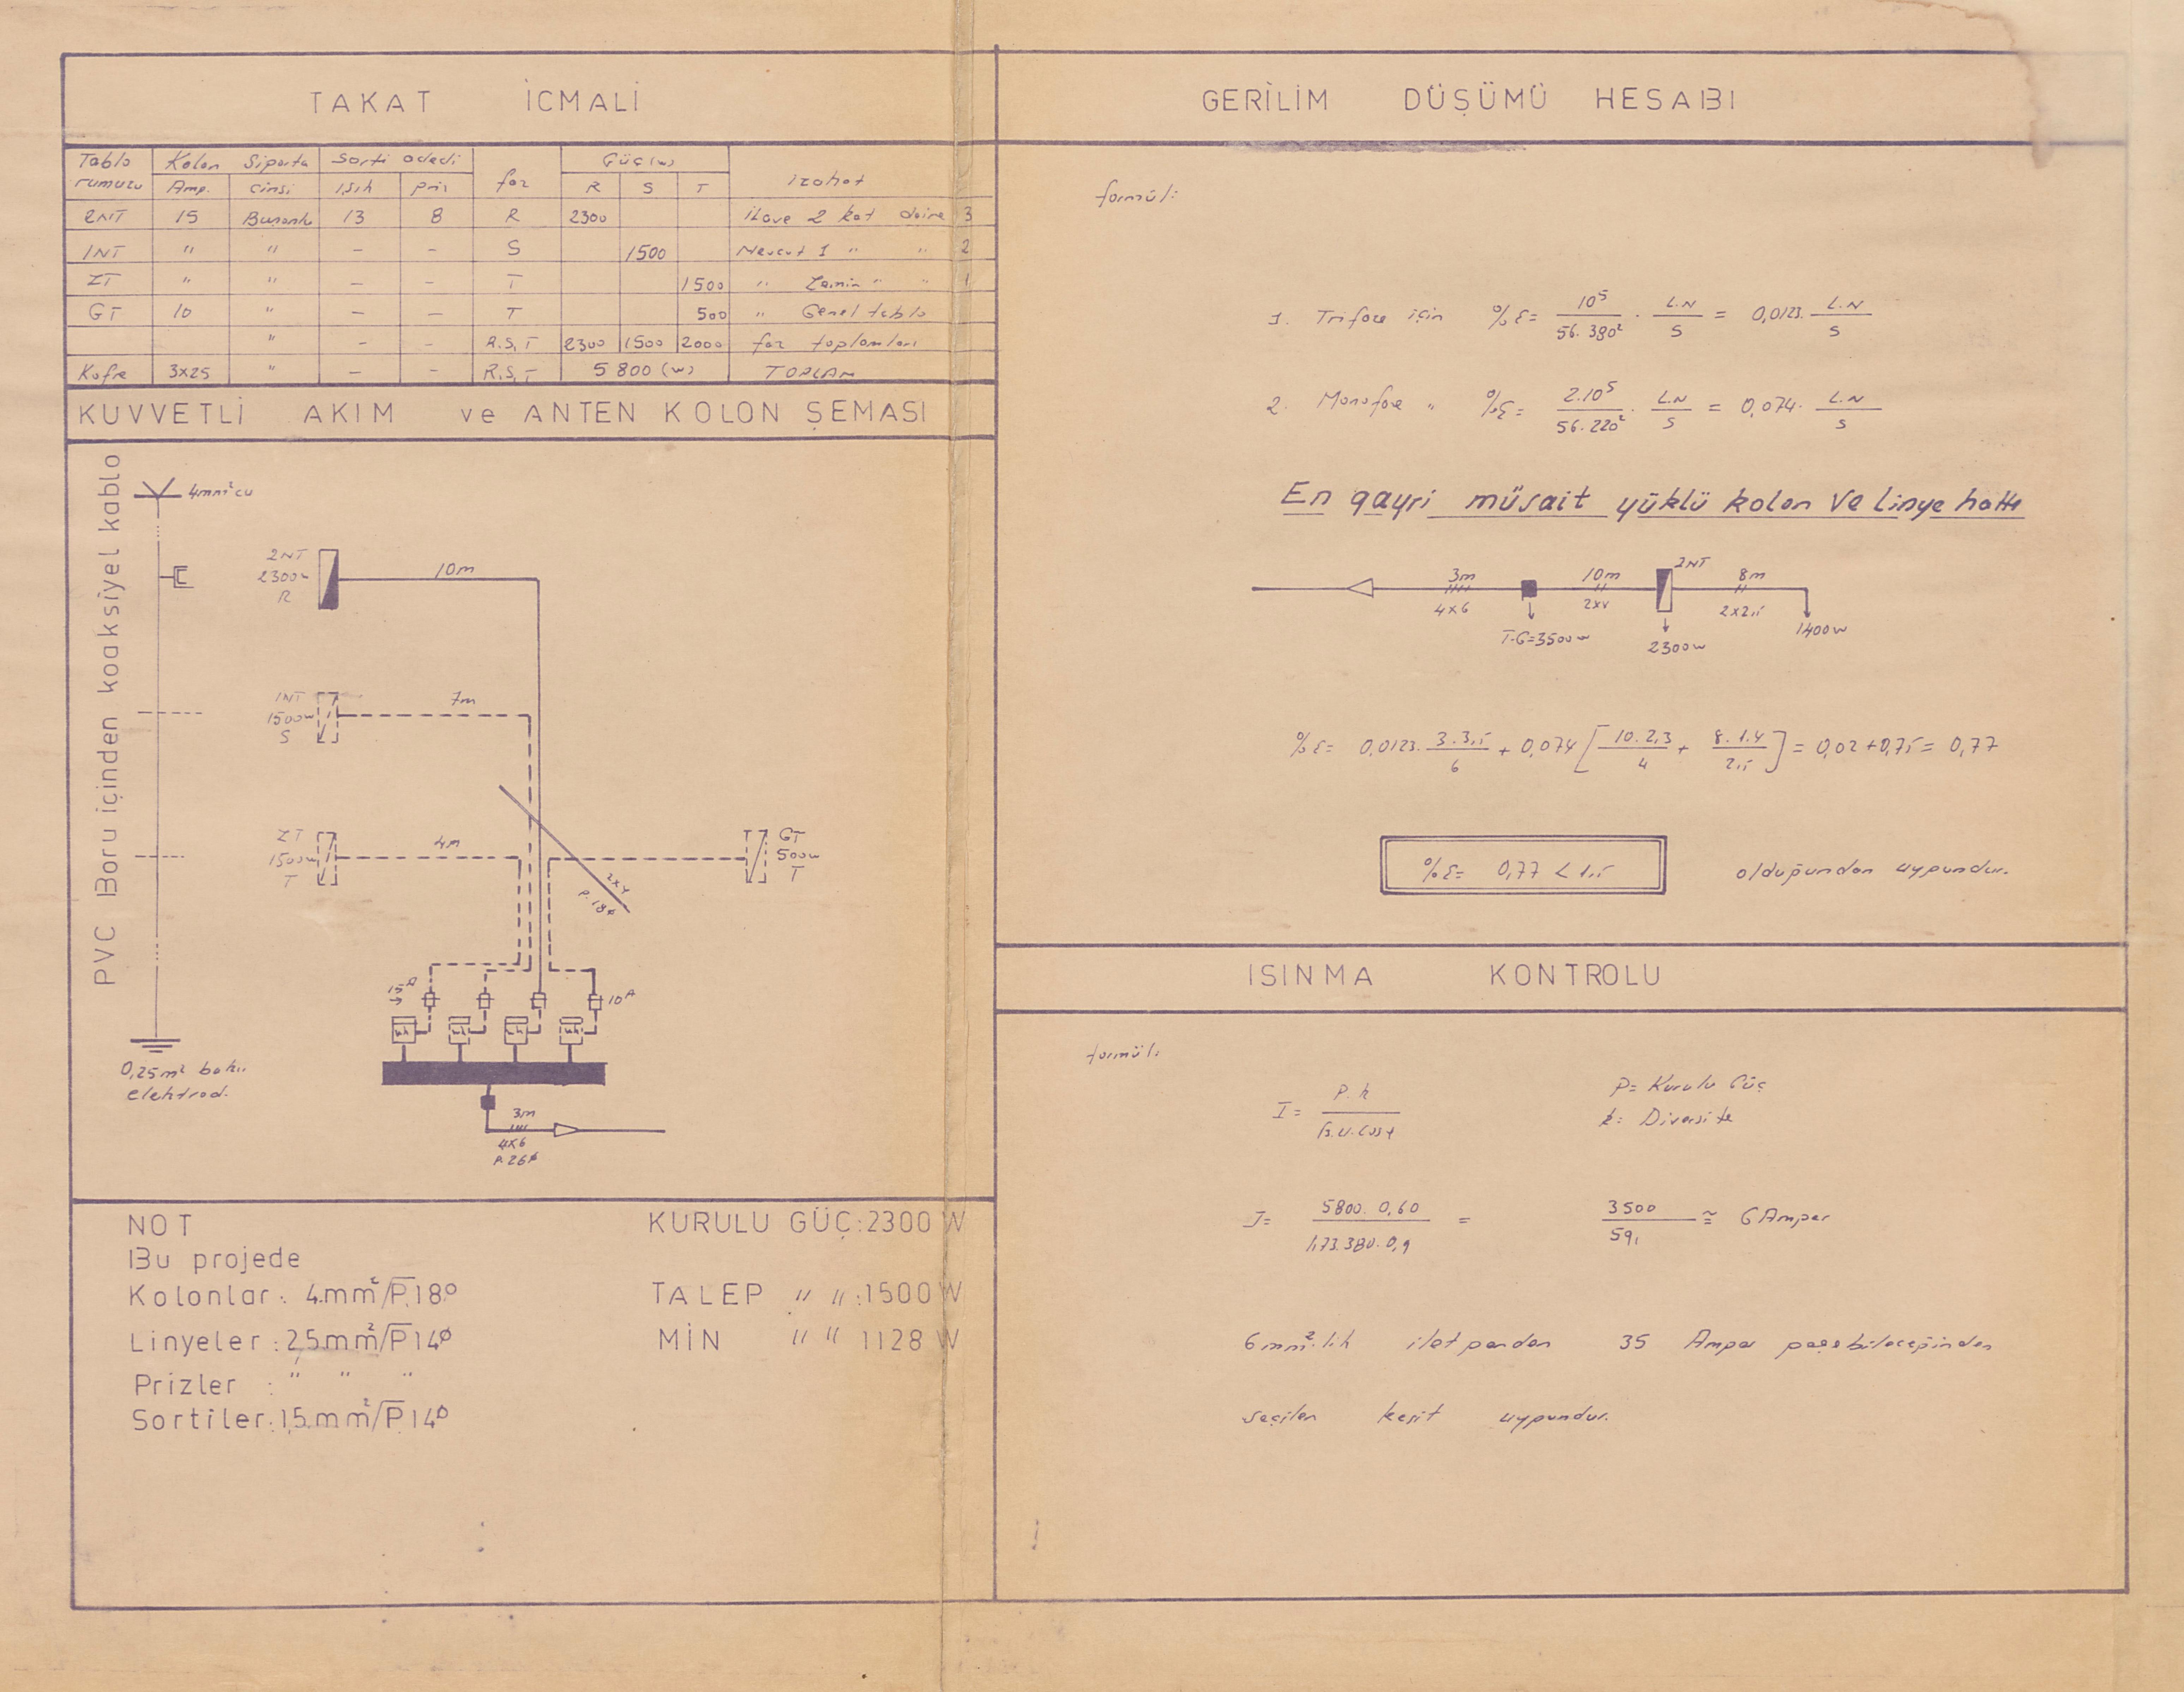 TAKAT İCMALİ
Tablo rumuzu | Kolon Siporta | Sorti adedi | faz | Güç (w) | izahat
Amp. | cinsi | Işık | priz | R | S | T
2NT 15 Buşonlu 13 8 R 2300 ilave 2 kat daire 3
1NT " " – – S 1500 Mevcut 1 " " 2
ZT " " – – T 1500 " Zemin " " 1
GT 10 " – – T 500 " Genel tablo
" – – R.S.T 2300 1500 2000 faz toplamları
Kofre 3x25 " – – R.S.T 5800 (w) TOPLAM
KUVVETLİ AKIM ve ANTEN KOLON ŞEMASI
PVC Boru içinden koaksiyel kablo
4mm²cu
2NT
2300w
R
10m
1NT
1500w
S
7m
ZT
1500w
T
4m
GT
500w
T
2x4
P.18ø
15A
10A
kh kh kh kh
0,25m² bakır
elektrod.
3m
4x6
P.26ø
NOT
Bu projede
Kolonlar: 4mm²/P.18ø
Linyeler: 2,5mm²/P14ø
Prizler : " " "
Sortiler: 1,5mm²/P14ø
KURULU GÜÇ:2300 W
TALEP " " :1500 W
MİN " " 1128 W
GERİLİM DÜŞÜMÜ HESABI
formül:
1. Trifaze için %ε= 10⁵/56.380² . L.N/S = 0,0123. L.N/S
2. Monofaze " %ε= 2.10⁵/56.220² . L.N/S = 0,074. L.N/S
En gayri müsait yüklü kolon ve linye hattı
3m
4x6
T.G=3500w
10m
2x4
2NT
2300w
8m
2x2,5
1400w
%ε= 0,0123. 3.3,5/6 + 0,074 [10.2,3/4 + 8.1.4/2,5] = 0,02+0,75= 0,77
%ε= 0,77 < 1,5 olduğundan uygundur.
ISINMA KONTROLU
formül:
I= P.k/√3.U.Cosφ
P= Kurulu Güç
k= Diversite
I= 5800.0,60/1,73.380.0,9 = 3500/591 ≅ 6 Amper
6mm².lik iletgenden 35 Amper geçebileceğinden
seçilen kesit uygundur.